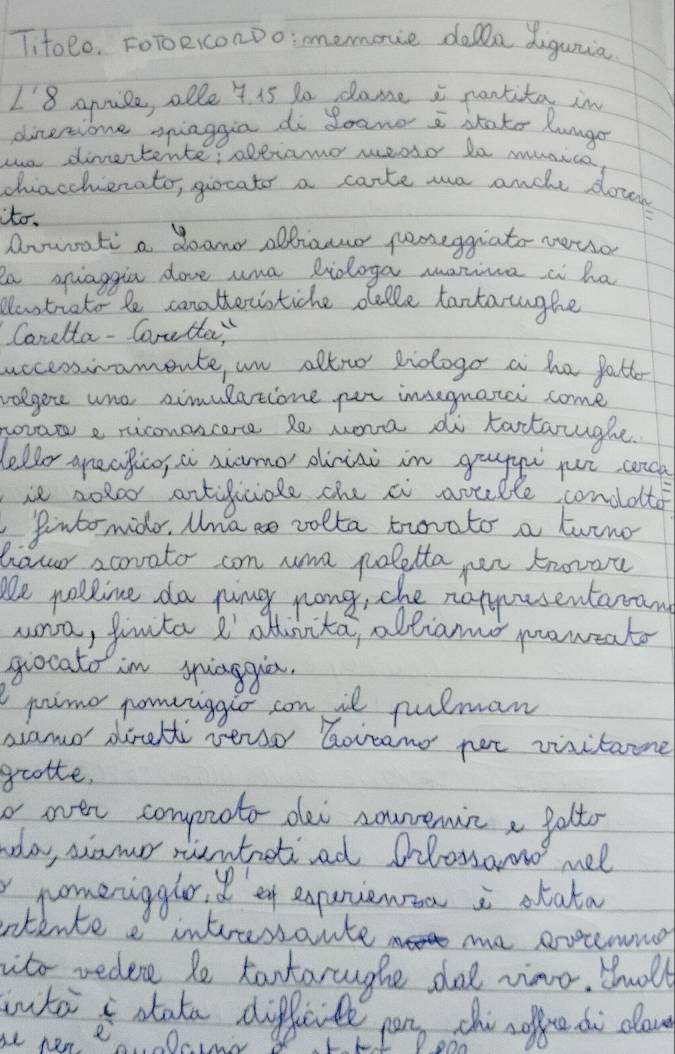 Titolo. FOTORICORDO: memorie della Liguria.
L'8 aprile, alle 7.15 la classe è partita in
direzione spiaggia di Loano è stato lungo
ma divertente: abbiamo messo la musica,
chiacchierato, giocato a carte ma anche dorm
ito.
Arrivati a Loano abbiamo passeggiato verso
la spiaggia dove una biologa marina ci ha
illustrato le caratteristiche delle tartarughe
"Caretta-Caretta".
uccessivamente, un altro biologo ci ha fatto
volgere una simulazione per insegnarci come
trovare e riconoscere le uova di tartarughe.
ello specifico, ci siamo divisi in gruppi per cerca
il solco artificiale che ci avrebbe condotto
finto nido. Una volta trovato a turno
biamo scovato con una paletta per trovare
lle palline da ping pong, che rappresentavano
uova, finita l'attività, abbiamo pranzato
giocato in spiaggia.
l primo pomeriggio con il pulman
siamo diretti verso Toirano per visitarne
grotte.
o aver comprato dei souvenir e fatto
nda, siamo rientrati ad Orbassano nel
pomeriggio. L'esperienza è stata
ertente e interessante ma avremmo
rito vedere le tartarughe dal vivo. Inolt
ività è stata difficile per chi soffre di claus
per qualcuno è